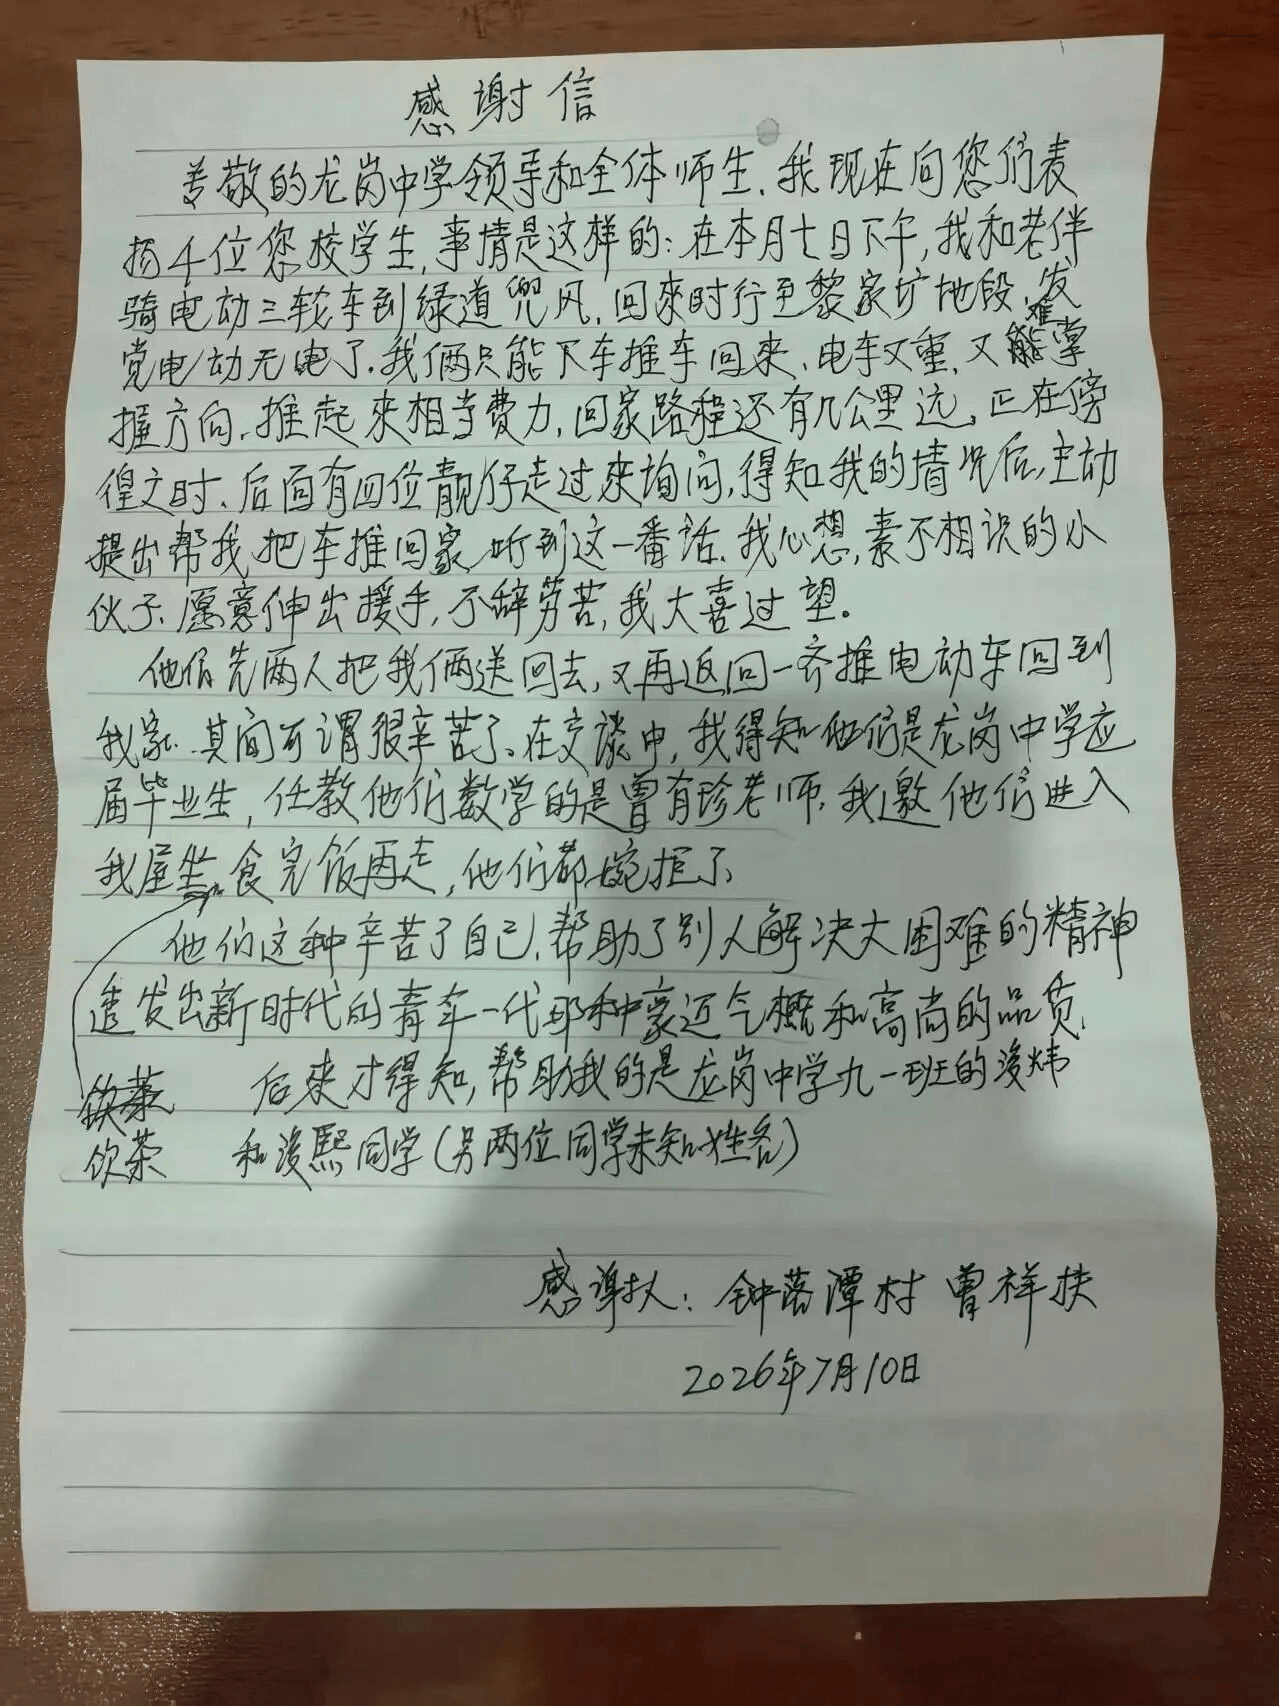 感谢信
尊敬的龙岗中学领导和全体师生，我现在向您们表
扬4位您校学生，事情是这样的：在本月七日下午，我和老伴
骑电动三轮车到绿道兜风，回来时行至黎家圹地段，发
觉电动无电了。我俩只能下车推车回来，电车又重，又难掌
握方向，推起来相当费力，回家路程还有几公里远，正在傍
徨之时，后面有四位靓仔走过来询问，得知我的情况后，主动
提出帮我把车推回家，听到这一番话，我心想，素不相识的小
伙子，愿意伸出援手，不辞劳苦，我大喜过望。
他们先两人把我俩送回去，又再返回一齐推电动车回到
我家，其间可谓很辛苦了。在交谈中，我得知他们是龙岗中学应
届毕业生，任教他们数学的是曾有珍老师，我邀他们进入
我屋坐，食完饭再走，他们都婉拒了。
他们这种辛苦了自己，帮助了别人解决大困难的精神
透发出新时代的青年一代那种豪迈气概和高尚的品质。
后来才得知，帮助我的是龙岗中学九一班的浚炜
饮茶
和浚熙同学（另两位同学未知姓名）
感谢人：钟落潭村 曾祥扶
2026年7月10日